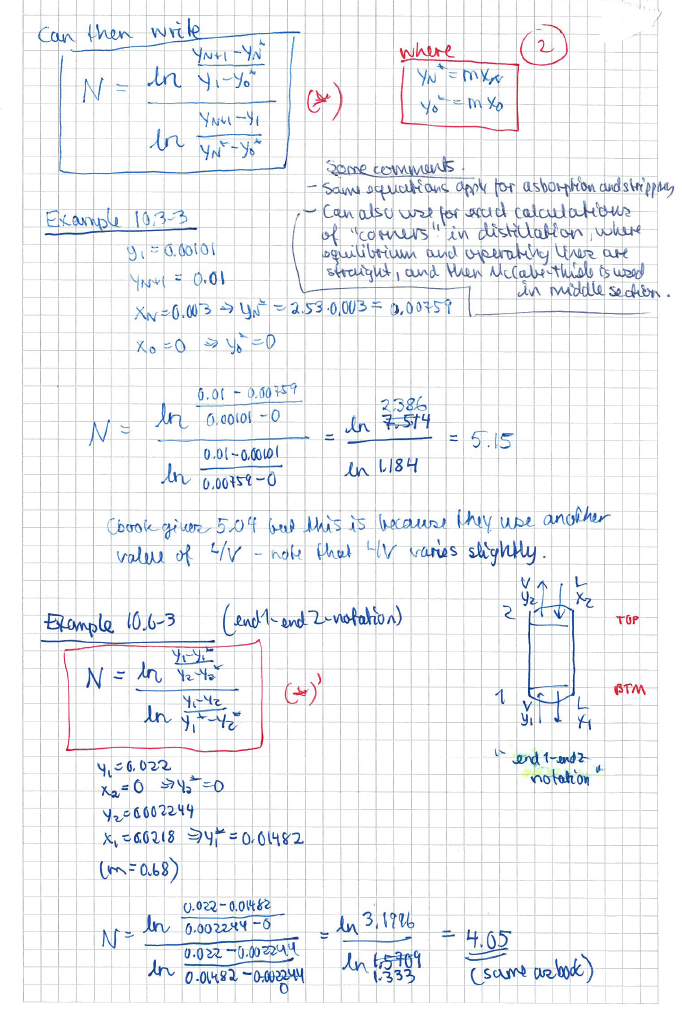 Can then write
N = ln (y_{N+1} - y_N^*)/(y_1 - y_0^*) / ln (y_{N+1} - y_1)/(y_N^* - y_0^*)
(*)
where
y_N^* = m x_N
y_0^* = m x_0
2
Some comments.
- Same equations apply for asborption and stripping
- Can also use for exact calculations
of "corners" in distillation, where
equilibrium and operating lines are
straight, and then McCabe-Thiele is used
in middle section.
Example 10.3-3
y_1 = 0.00101
y_{N+1} = 0.01
x_N = 0.003 ⇒ y_N^* = 2.53·0.003 = 0.00759
x_0 = 0 ⇒ y_0^* = 0
N = ln (0.01 - 0.00759)/(0.00101 - 0) / ln (0.01 - 0.00101)/(0.00759 - 0) = ln 2.386 7.514 / ln 1.184 = 5.15
(book gives 5.04 but this is because they use another
value of L/V - note that L/V varies slightly.
Example 10.6-3 (end1-end2-notation)
N = ln (y_1 - y_1^*)/(y_2 - y_2^*) / ln (y_1 - y_2)/(y_1^* - y_2^*)
(*)'
V L
y_2 x_2
2 TOP
1 BTM
V L
y_1 x_1
"end1-end2
notation"
y_1 = 0.022
x_2 = 0 ⇒ y_2^* = 0
y_2 = 0.002244
x_1 = 0.0218 ⇒ y_1^* = 0.01482
(m = 0.68)
N = ln (0.022 - 0.01482)/(0.002244 - 0) / ln (0.022 - 0.002244)/(0.01482 - 0.002244 0) = ln 3.1996 / ln 1.5709 1.333 = 4.05
(same as book)